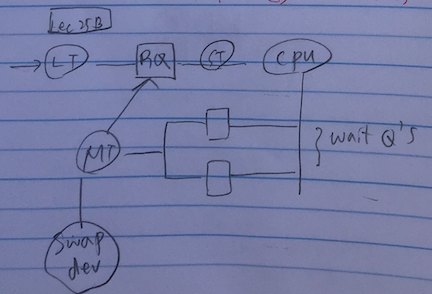 Lec 25B
LT
RQ
CT
CPU
MT
wait Q's
Swap
dev